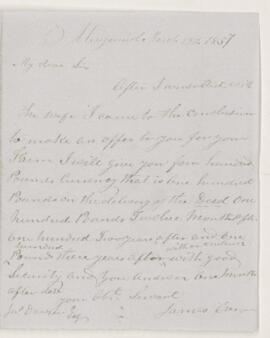 March 19th 1857
My dear Sir
After I consulted with
the wife I came to the conclusion
to make an offer to you for your
Farm I will give you four hundred
Pounds Currency that is one hundred
Pounds on the delivery of the Deed one
hundred Pounds Twelve Months after
one hundred Two years after and one
hundred
Pounds three years after with good
Security and you answer one month
after date
your Obt. Servant
James
Esq